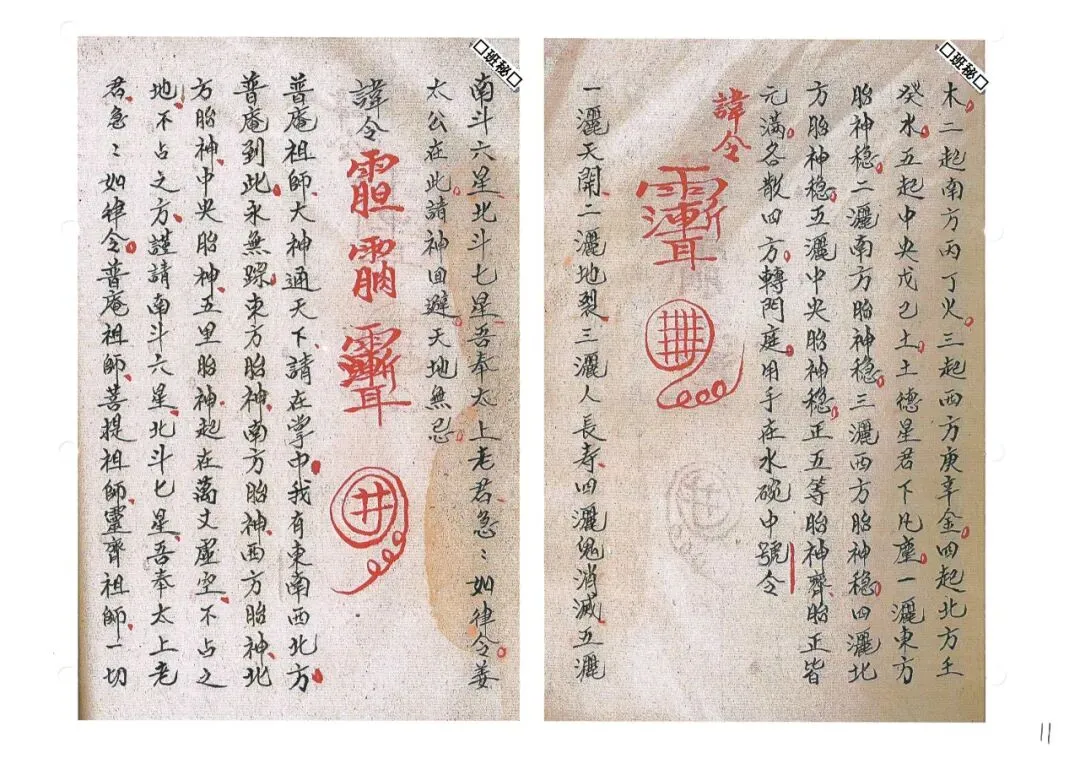 班秘
木二起南方丙丁火三起西方庚辛金四起北方壬
癸水五起中央戊己土土德星君下凡塵一灑東方
胎神稳二灑南方胎神稳三灑西方胎神稳四灑北
方胎神稳五灑中央胎神稳正五等胎神齊胎正皆
元满各散四方轉門庭用手在水碗中號令
諱令
一灑天開二灑地裂三灑人長寿四灑鬼消滅五灑
班秘
南斗六星北斗七星吾奉太上老君急:如律令姜
太公在此請神回避天地無忌
諱令
普庵祖師大神通天下請在掌中我有東南西北方
普庵到此永無踪東方胎神南方胎神西方胎神北
方胎神中央胎神五里胎神起在萬丈虚空不占之
地不占之方謹請南斗六星北斗七星吾奉太上老
君急:如律令普庵祖師菩提祖師靈齊祖師一切
11